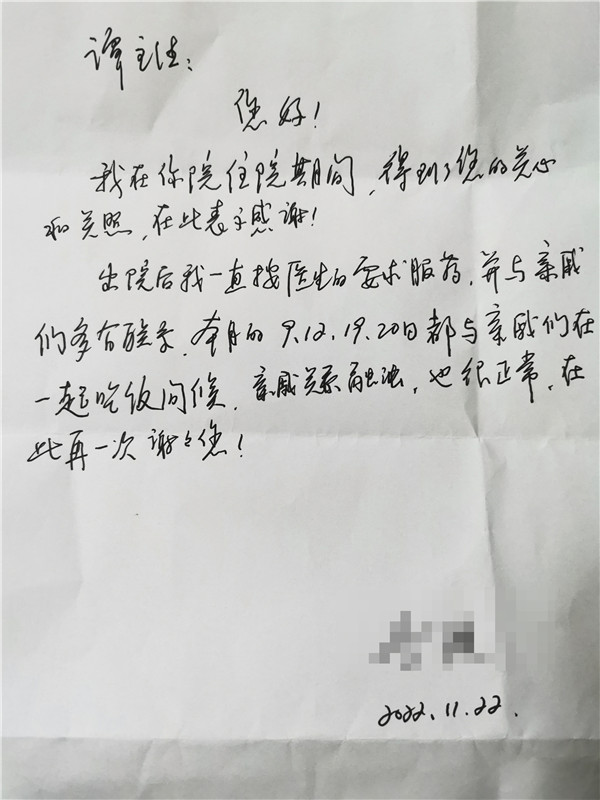 谭主任：
您好！
我在你院住院其间，得到了您的关心
和关照，在此表示感谢！
出院后我一直按医生的要求服药，并与亲戚
们多有联系，本月的9.12.19.20日都与亲戚们在
一起吃饭问候，亲戚关系融洽，也很正常，在
此再一次谢谢您！
2022.11.22.